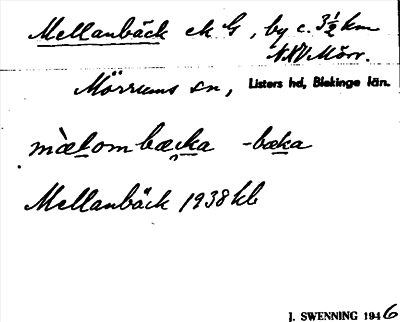 Mellanbäck ek G, by c. 3½ km
NNV Mörr.
Mörrums sn, Listers hd, Blekinge län.
mæ̀lombæcka -bæka
Mellanbäck 1938 kb
J. SWENNING 1946